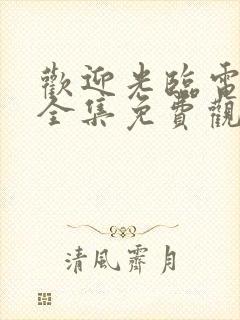 歡迎光臨電
全集免費觀
清風霽月